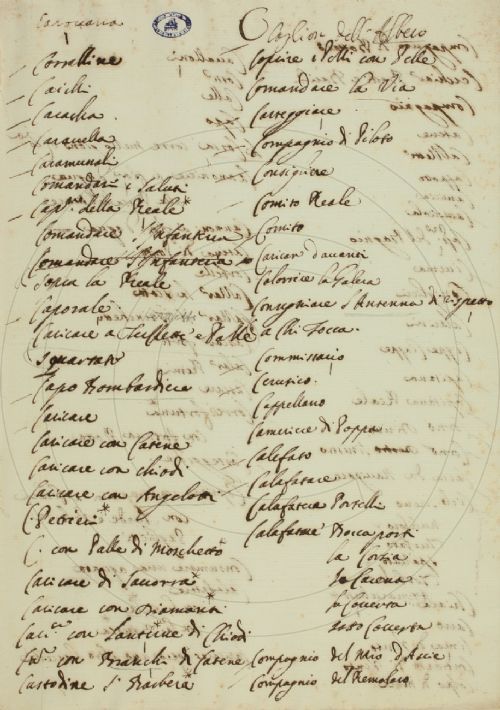 Carovana
Corselline
Caichi
Caracha.
Caravella
Caramunali
Comandar i Saluti
Cap.º della Reale*
Comandare l'Infanteria
Comandare l'Infanteria
sopra la Reale
Caporale
Caricare a e Palle
squarrate
Capo Bombardiere
Caricare
Caricare con Catene
Caricare con chiodi
Caricare con Angelotti
C. Petrieri*
C. con Palle di Moschetto*
Caricare di Savorra*
Caricare con Diamanti*
con Lantirne di Chiodi
con Branchi di Catene
Custodine S.ª Barbera*
Caglion dell'Albero
Coprire i Petti con Pelle
Comandare la Via
Carteggiare
Compagnio di Piloto
Consigliere
Comito Reale
Comito
Caricar d'avanti
Colorire la Galera
Consegniare l'Antenna di rispetto
a chi Tocca.
Commissario
Cerusico.
Cappellano
Cameriere di Poppa
Calefato
Calafatare
Calafatare Portelli
Calafatare Boccaporti
la Corsia
la Carena
la Coverta
sotto Coverta
Compagnio del M.ro d'Ascie
Compagnio del Remolaro